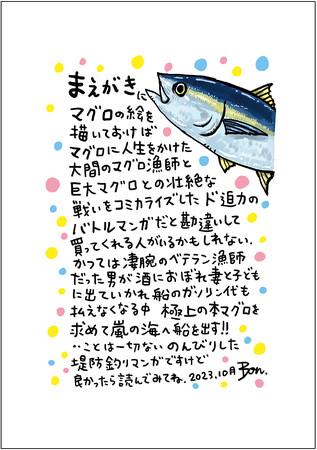 まえがきに
マグロの絵を
描いておけば
マグロに人生をかけた
大間のマグロ漁師と
巨大マグロとの壮絶な
戦いをコミカライズした ド迫力の
バトルマンガだと勘違いして
買ってくれる人がいるかもしれない.
かつては凄腕のベテラン漁師
だった男が酒におぼれ妻と子ども
に出ていかれ船のガソリン代も
払えなくなる中 極上の本マグロを
求めて嵐の海へ船を出す!!
‥ことは一切ない のんびりした
堤防釣りマンガですけど
良かったら読んでみてね. 2023.10月 Bon.